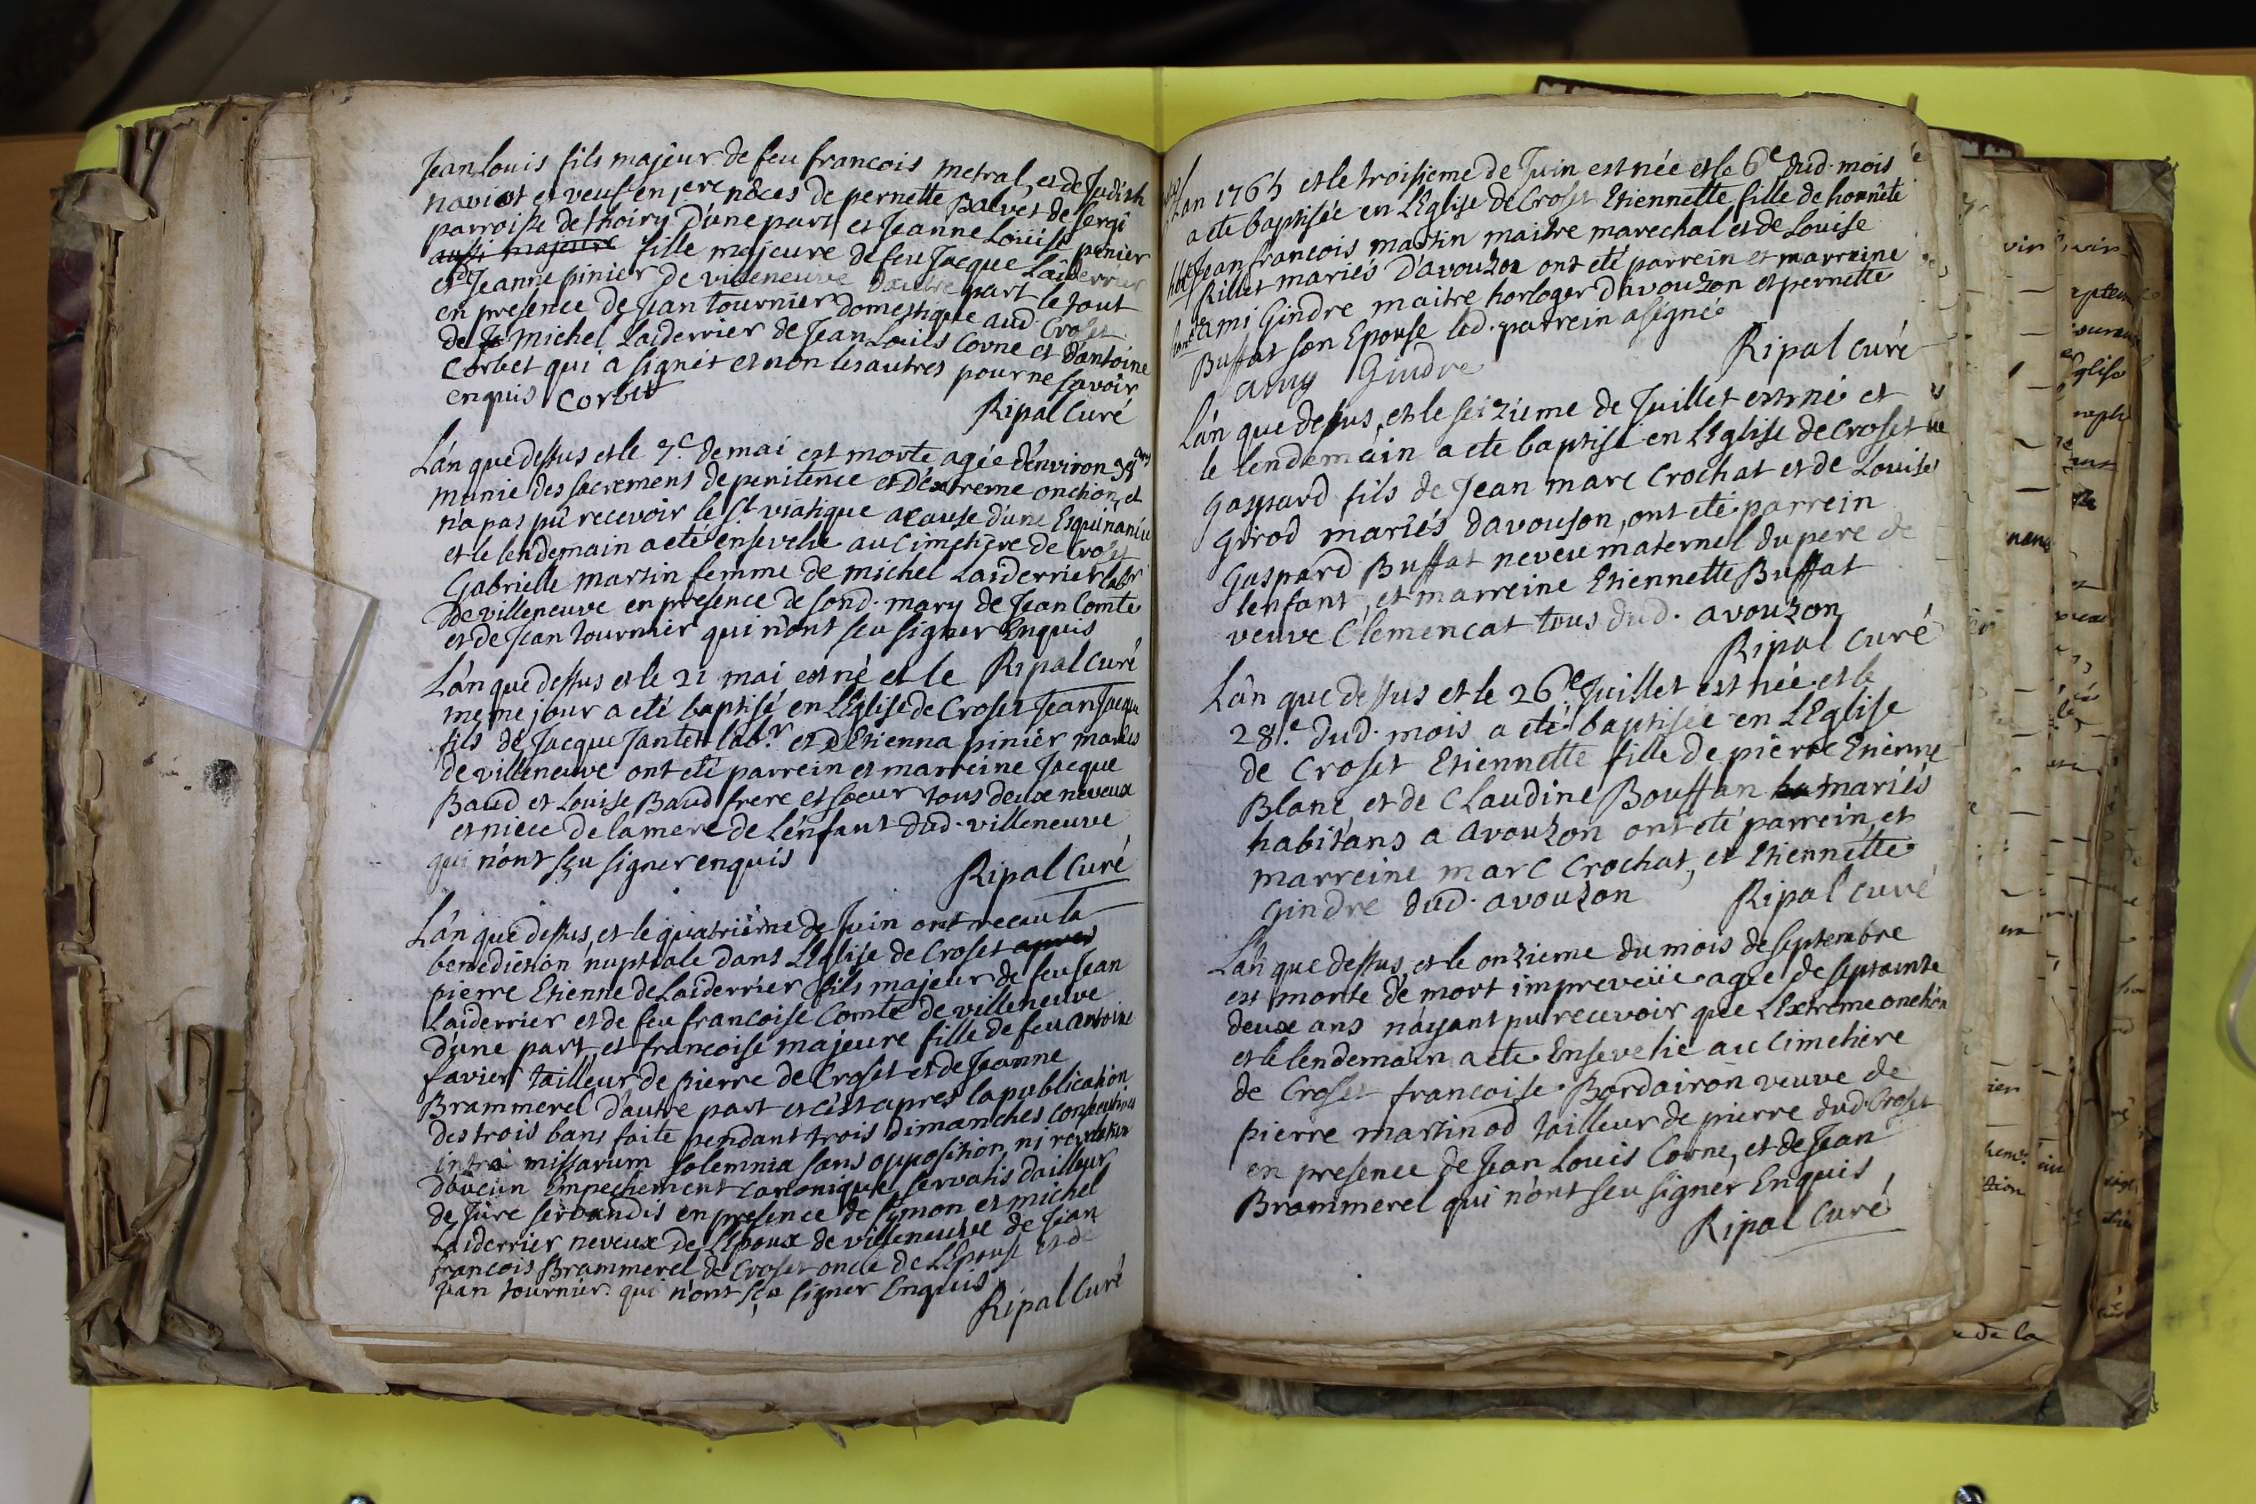 Jean Louis fils majeur de feu francois metral, et de Judith
naviot et veuf en 1ere nôces de pernette Balvet de Sergi
parroisse de thoiry d'une part et Jeanne Louïse penier
aussi majeure fille majeure de feu Jacque Laiderrier
et de Jeanne pinier de villeneuve dautre part le tout
en presence de Jean tournier domestique aud. Croset
de Michel Laiderrier de Jean Louis Corne et d'antoine
Corbet qui a signet et non les autres pour ne savoir
enquis Corbet
Ripal Curé
L'an que dessus et le 7.e de mai est morte agée d'environ 38 ans
munie des sacremens de penitence et d'éxtreme onction, et
n'a pas pû recevoir le St. viatique acause d'une Esquinancie
et le lendemain a eté ensevelie au cimetière de Croset
Gabrielle martin femme de michel Laiderrier labr
de villeneuve en presence de sond. mary de Jean Comte
et de Jean tournier qui n'ont seu signer Enquis
Ripal Curé
L'an que dessus et le 21 mai est né et le
meme jour a eté baptisé en L'Eglise de Croset Jean Jacque
fils de Jacque Jantet lab.r et d'Etienna pinier mariés
de villeneuve ont eté parrein et marreine Jacque
Baud et Louise Baud frere et sœur tous deux neveux
et niece de la mere de L'enfant dud. villeneuve
qui n'ont sçu signer enquis
Ripal Curé
L'an que dessus, et le quatrième de Juin ont receu la
benediction nuptiale dans L'Eglise de Croset apres
pierre Etienne de Laiderrier fils majeur de feu Jean
Laiderrier et de feu francoise Comte de villeneuve
d'une part et francoise majeure fille de feu antoine
favier tailleur de pierre de Croset et de Jeanne
Brammerel d'autre part et c'est apres la publication
des trois bans faite pendant trois dimanches consecutives
intra missarum solemnia sans opposition, ni revelation
d'aucun Empechement canonique servatis d'ailleur
de Jure servandis en presence de Simon et michel
Laiderrier neveux de L'Epoux de villeneuve de Jean
francois Brammerel de Croset oncle de L'Epouse et de
Jean tournier qui n'ont sçu signer Enquis
Ripal Curé
L'an 1765 et le troisieme de Juin est née et le 6e dud. mois
a eté baptisée en L'Eglise de Croset Etiennette fille de honnête
Jean francois martin maitre marechal et de Louise
Rillet mariés d'avouzon ont eté parrein et marreine
ami Gindre maitre horloger d'avouzon et pernette
Buffat son Epouse led. parrein a signé
amy Gindre
Ripal Curé
L'an que dessus, et le seizieme de Juillet est né et
le lendemain a ete baptisé en L'Eglise de croset
Gaspard fils de Jean marc Crochat et de Louise
Girod mariés davouson, ont eté parrein
Gaspard Buffat neveu maternel du pere de
lenfant, et marreine Etiennette Buffat
veuve Clemencat tous dud. avouzon
Ripal Curé
L'an que dessus et le 26e Juillet est née et le
28.e dud. mois a eté baptisée en L'Eglise
de Croset Etiennette fille de pierre Etienne
Blanc et de Claudine Bouffan mariés
habitans a avouzon ont eté parrein et
marreine marc Crochat, et Etiennette
Gindre dud. avouzon
Ripal Curé
L'an que dessus, et le onzieme du mois de septembre
est morte de mort impreveüe agée de septante
deux ans n'ayant pu recevoir que L'Extreme onction
et le lendemain a eté Ensevelie au Cimetiere
de Croset francoise Bordairon veuve de
pierre martinod tailleur de pierre dud. Croset
en presence de Jean Louis Corne, et de Jean
Brammerel qui n'ont seu signer Enquis
Ripal Curé